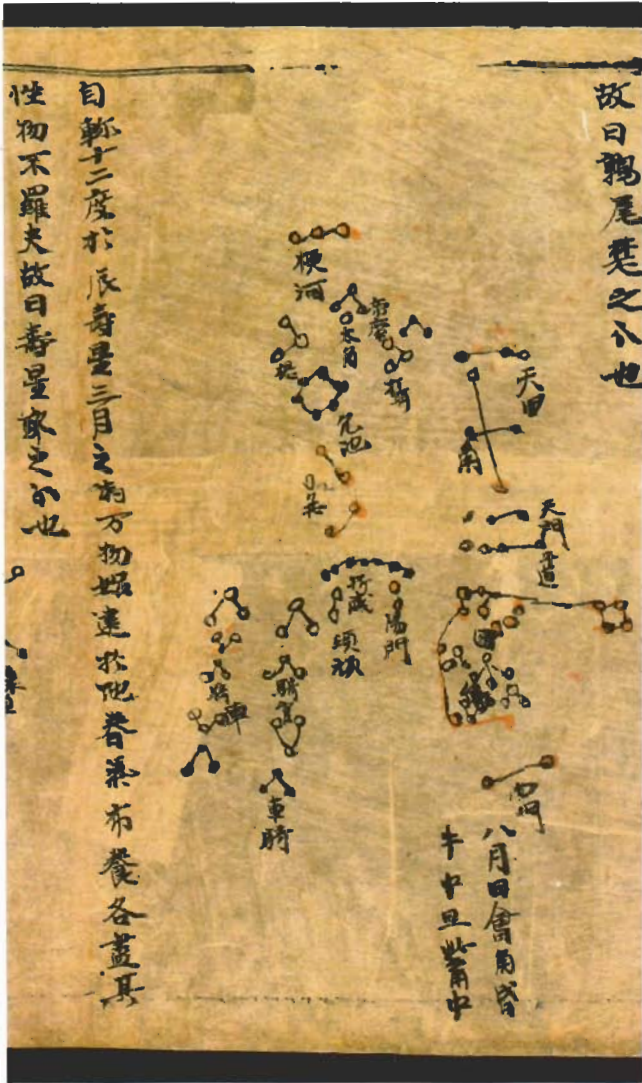 故曰鶉尾楚之分也
天田
角
天門
平道
南門
八月日會角昏
牛中旦觜中
帝席
大角
梗河
亢池
亢
折威
頓頑
陽門
騎官
車騎
自軫十二度於辰壽星三月之時万物始達於地春氣布養各盡其
性物不羅夭故曰壽星鄭之分也